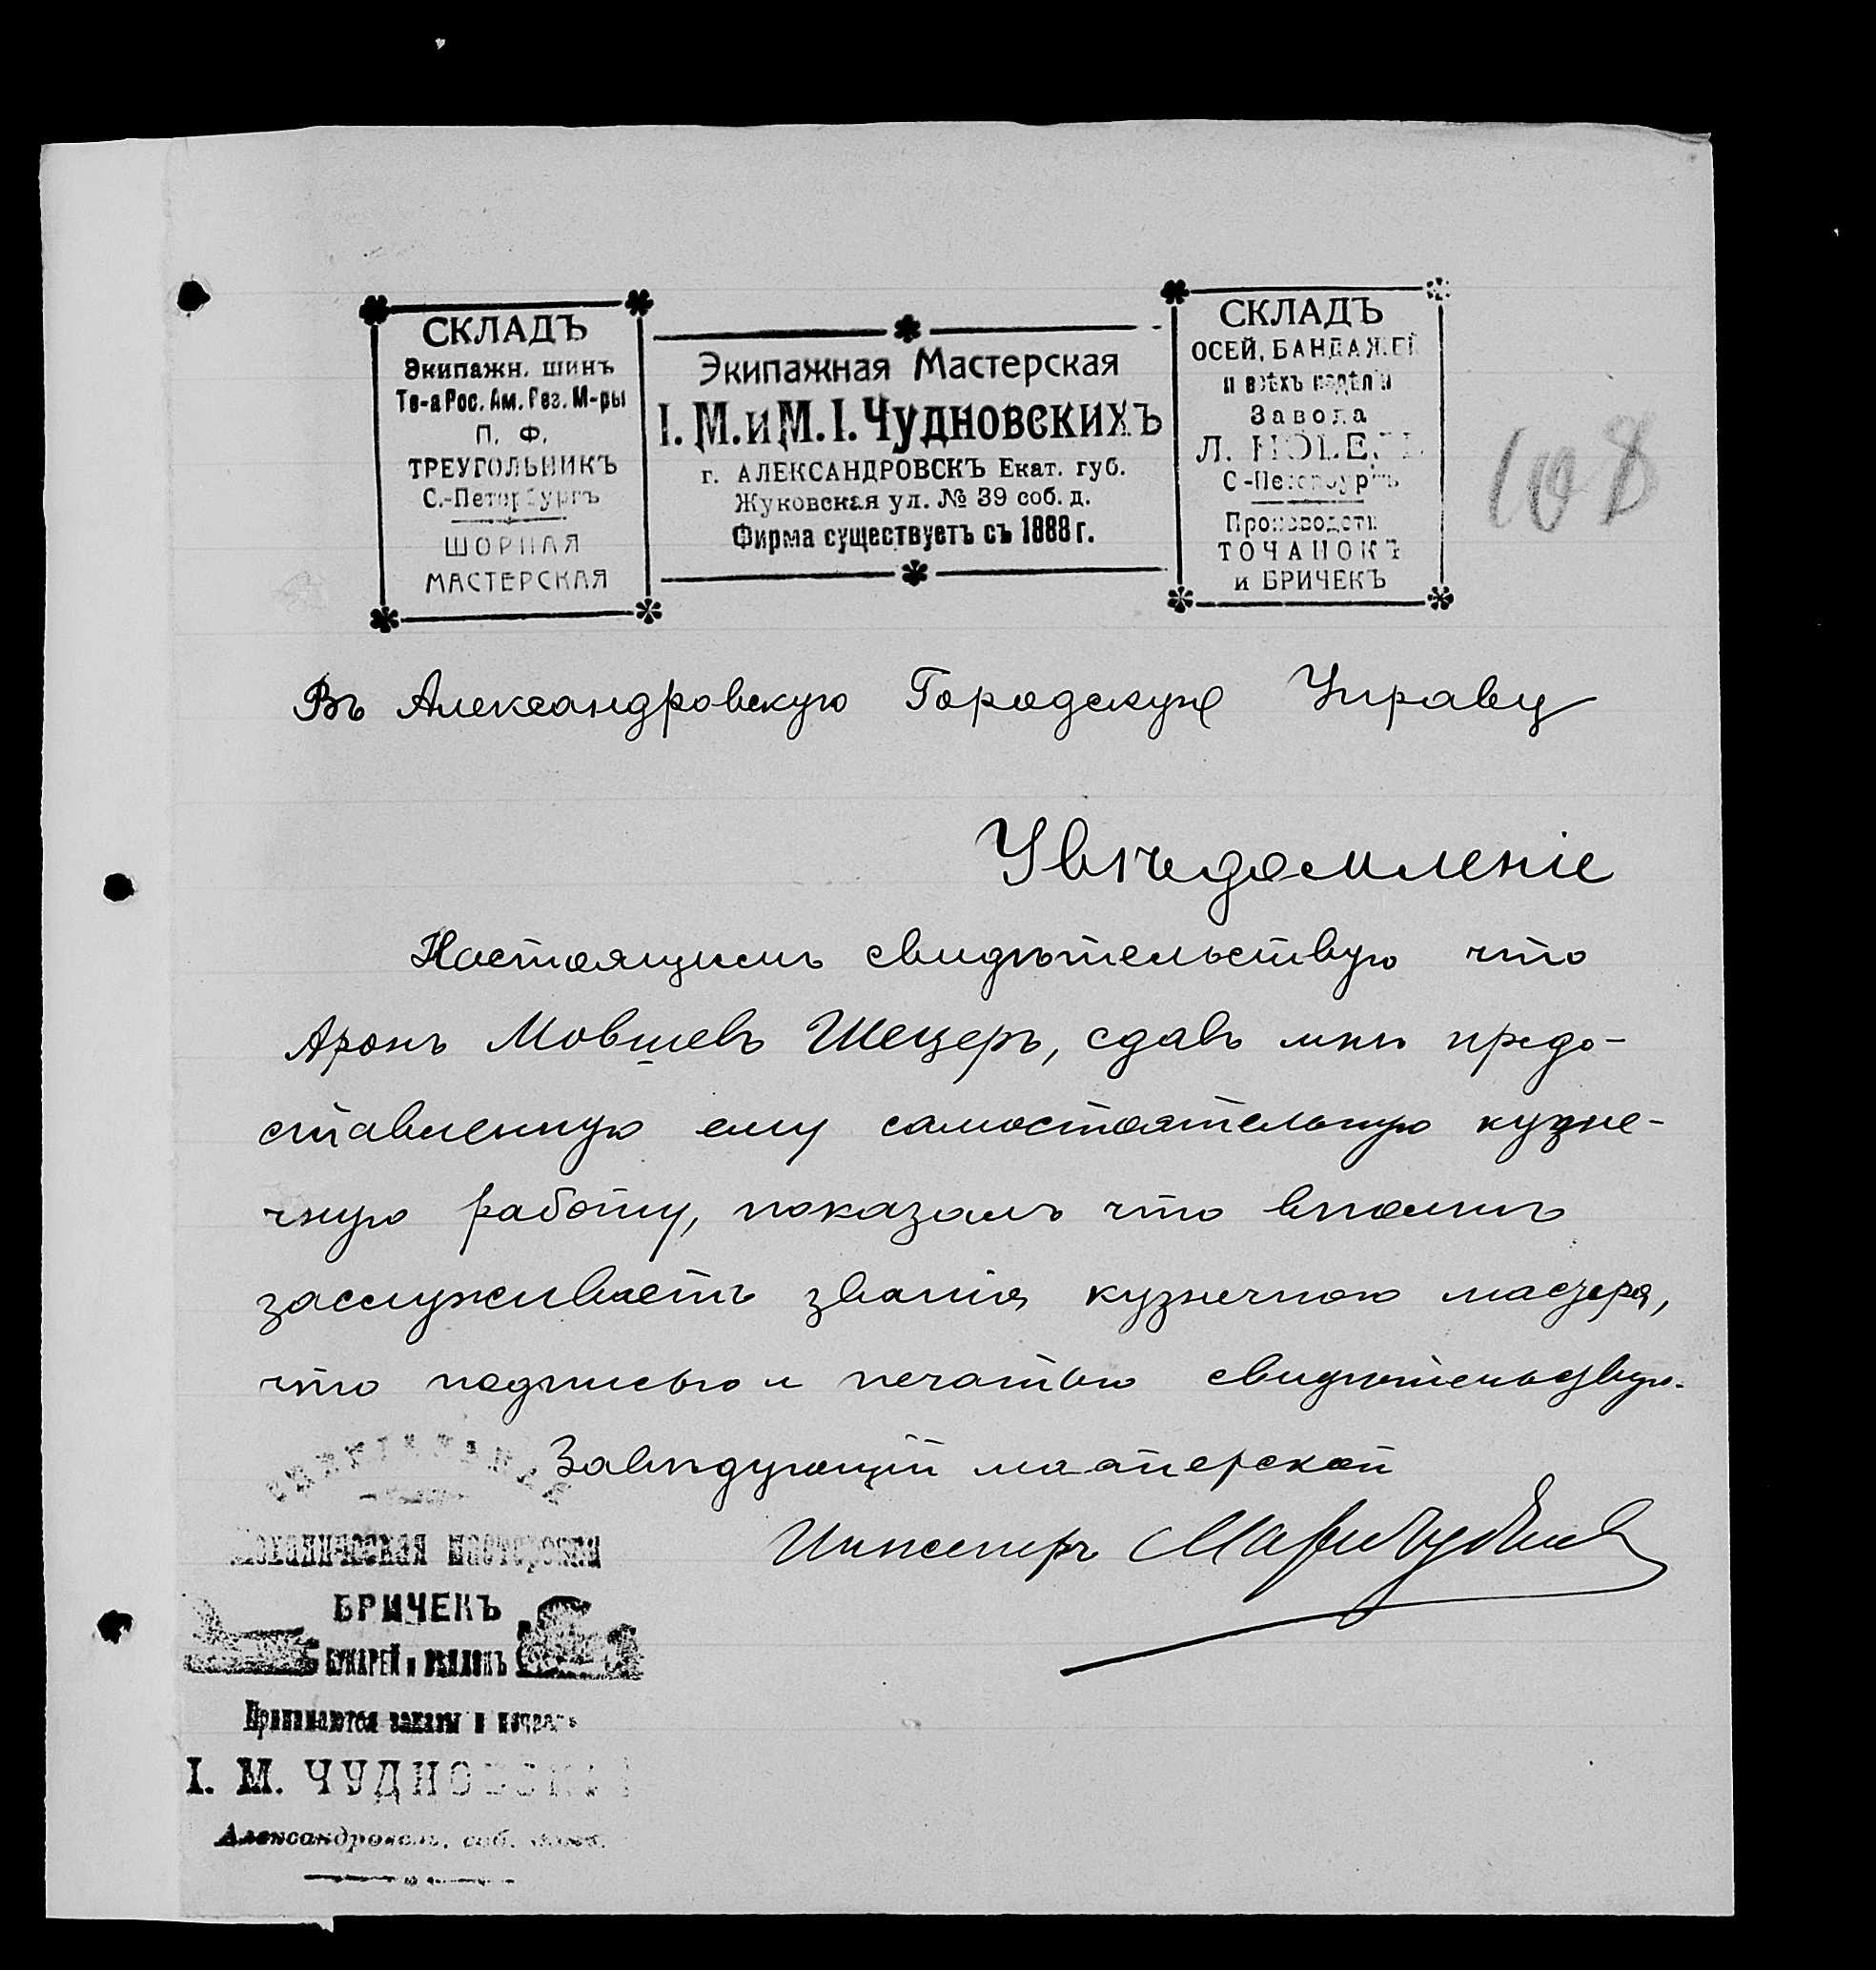 СКЛАДЪ
Экипажн. шинъ
Тв-а Рос. Ам. Рез. М-ры
П. Ф.
ТРЕУГОЛЬНИКЪ
С.-Петербургъ
ШОРНАЯ
МАСТЕРСКАЯ
Экипажная Мастерская
І. М. и М. І. Чудновскихъ
г. АЛЕКСАНДРОВСКЪ Екат. губ.
Жуковская ул. № 39 соб. д.
Фирма существуетъ съ 1888 г.
СКЛАДЪ
ОСЕЙ, БАНДАЖЕЙ
и всѣхъ издѣлій
Завода
Л. НОБЕЛЬ
С-Петербургъ
Производств
ТОЧАНОКЪ
и БРИЧЕКЪ
108
Въ Александровскую Городскую Управу
Увѣдомленіе
Настоящимъ свидѣтельствую что
Аронъ Мовшевъ Шецеръ, сдавъ мнѣ предо-
ставленную ему самостоятельную кузне-
чную работу, показалъ что вполнѣ
заслуживаетъ званія кузнечного мастера,
что подписью и печатью свидѣтельствую.
Завѣдующій мастерской
Инженеръ
Механическая мастерская
БРИЧЕКЪ
БУКАРЕЙ и
Принимаются заказы и
І. М. ЧУДНОВСКАГО
Александровскъ, соб. домъ.